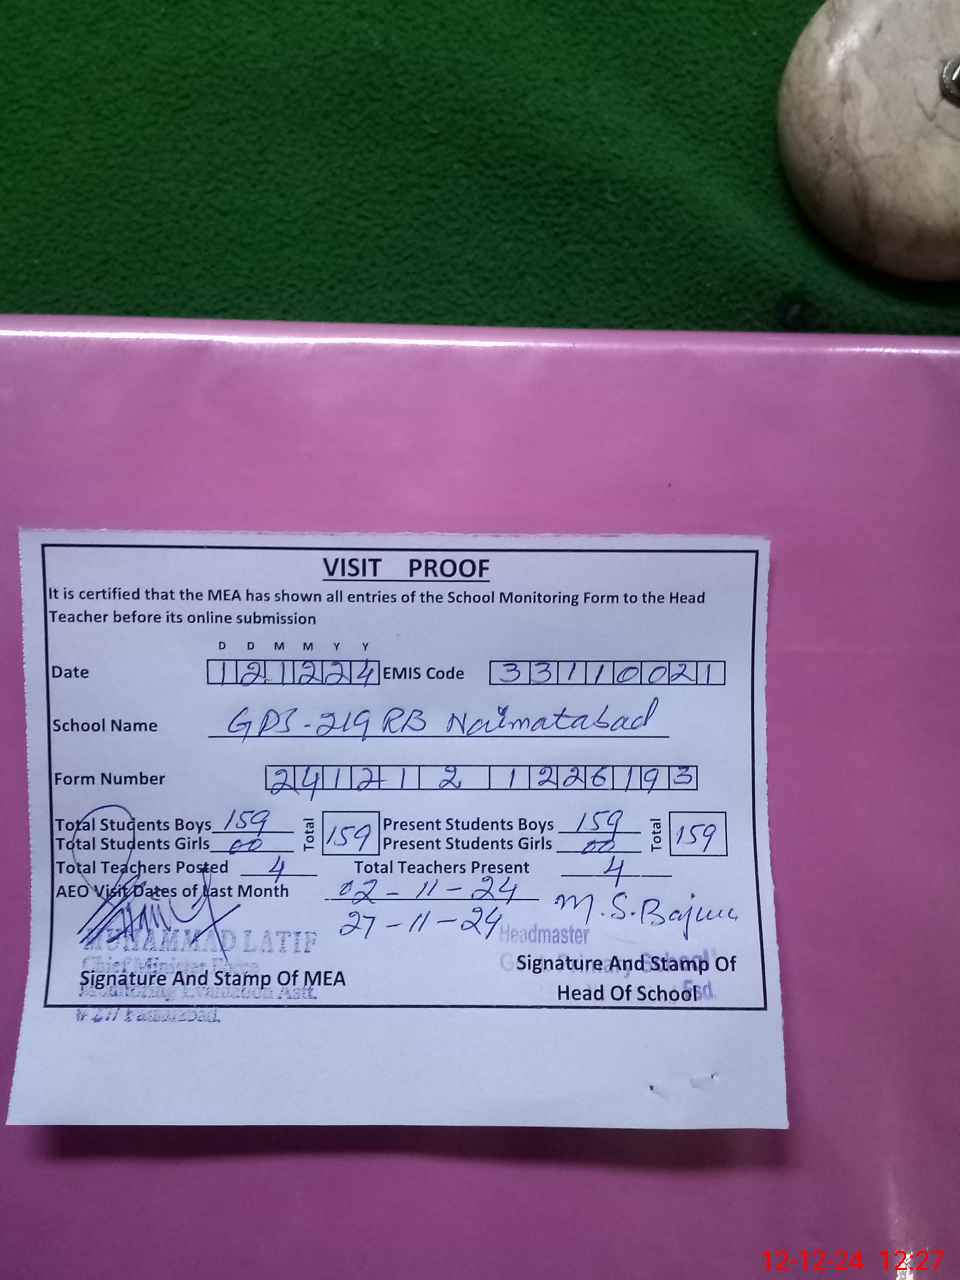 VISIT PROOF
It is certified that the MEA has shown all entries of the School Monitoring Form to the Head
Teacher before its online submission
D D M M Y Y
Date 121224 EMIS Code 33110021
School Name GPS-219 RB Naimatabad
Form Number 2412121226193
Total Students Boys 159 Total 159 Present Students Boys 159 Total 159
Total Students Girls 00 Present Students Girls 00
Total Teachers Posted 4 Total Teachers Present 4
AEO Visit Dates of Last Month 02-11-24
27-11-24 M.S.
MUHAMMAD LATIF Headmaster
Chief Minister
Signature And Stamp Of MEA Signature And Stamp Of
Primary School
Monitoring Evaluation Astt. Head Of School Fsd.
# 277 Faisalabad.
12-12-24 12:27